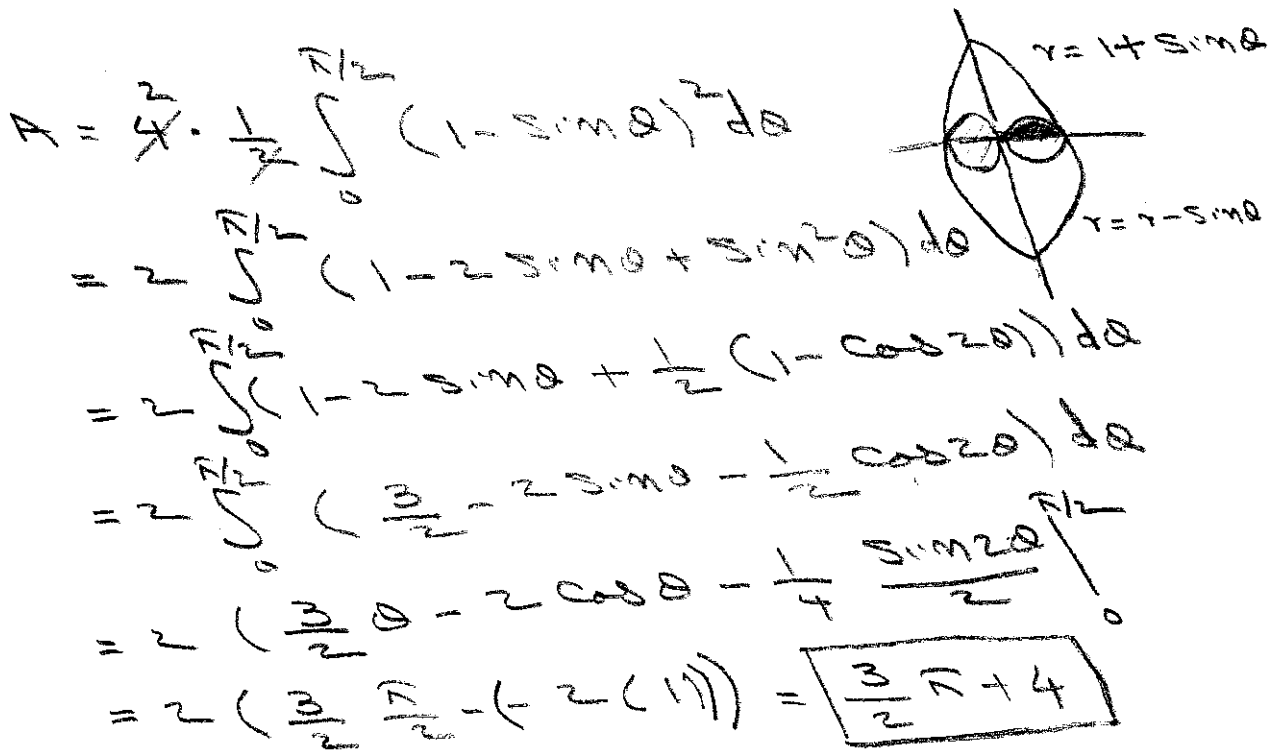 A = 4̸ 2 · 1/2̸ ∫₀^{π/2} (1 - sinθ)² dθ
r = 1 + sinθ
= 2 ∫₀^{π/2} (1 - 2 sinθ + sin²θ) dθ
r = r - sinθ
= 2 ∫₀^{π/2} (1 - 2 sinθ + 1/2 (1 - cos2θ)) dθ
= 2 ∫₀^{π/2} (3/2 - 2 sinθ - 1/2 cos2θ) dθ
= 2 (3/2 θ - 2 cosθ - 1/4 sin2θ/2 |₀^{π/2}
= 2 (3/2 π/2 - (-2(1))) = 3/2 π + 4